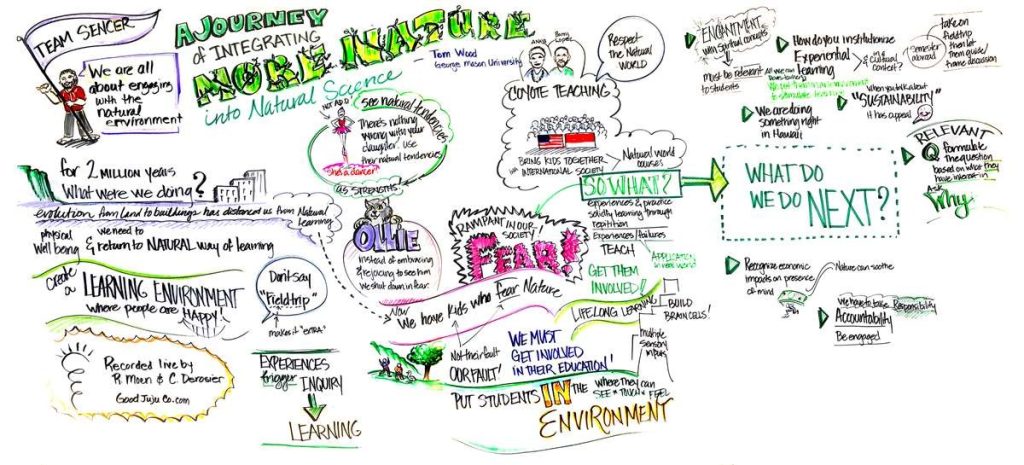 TEAM SENCER
We are all
about engaging
with the
natural
environment
A JOURNEY
of INTEGRATING
MORE NATURE
into Natural Science
- Tom Wood
George Mason University
for 2 MILLION years
What were we doing?
evolution from land to buildings has distanced us from Natural
Learning
physical
well being
we need to
& return to NATURAL way of learning
Create
a
LEARNING ENVIRONMENT
where people are
HAPPY!
Recorded live by
R. Moen & C. Derosier
Good Juju Co.com
Don't say
"Fieldtrip"
makes it "EXTRA"
EXPERIENCES
trigger
INQUIRY
LEARNING
NOT ADD
see natural tendencies
There's nothing
wrong with your
daughter. Use
their natural tendencies
"She's a dancer"
as STRENGTHS
OLLIE
instead of embracing
& rejoicing to see him
we shut down in fear.
RAMPANT IN OUR
SOCIETY
FEAR!
Now
We have kids who fear Nature
Not their fault
OUR FAULT!
WE MUST
GET INVOLVED
IN THEIR EDUCATION!
PUT STUDENTS IN THE
where they can
SEE TOUCH & FEEL
ENVIRONMENT
Respect
the Natural
WORLD
COYOTE TEACHING
BRING KIDS TOGETHER
INTERNATIONAL SOCIETY
Natural world
courses
SO WHAT?
experiences & practice
solidify learning through
repitition
Experiences/failures
TEACH
GET THEM
INVOLVED!
APPLICATION
in real world
LIFELONG LEARNING
BUILD
BRAIN CELLS!
multiple
sensory
inputs
WHAT DO
WE DO NEXT?
ENCHANTMENT
with Spiritual concepts
must be relevant
to students
How do you institutionize
Experiential
learning
in a
Cultural
context?
Semester
abroad
take on
fieldtrip
then let
them guide/
frame discussion
We are doing
something right
in Hawaii
When you talk about
"SUSTAINABILITY"
it has appeal
RELEVANT
Q formulate
the question
based on what they
have interest in
Ask
Why
Recognize economic
impacts on presence
of mind
Nature can soothe
We have to take Responsibility
Accountability
Be engaged